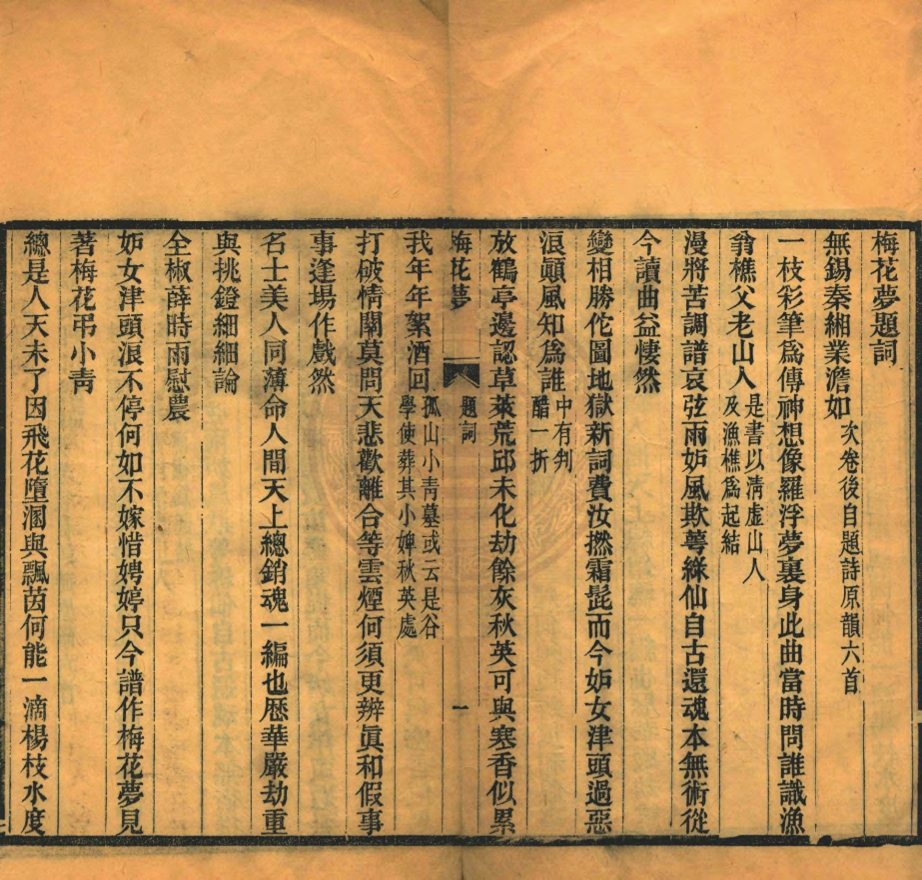 梅花夢題詞
無錫秦緗業澹如次卷後自題詩原韻六首
一枝彩筆爲傳神想像羅浮夢裏身此曲當時問誰識漁
翁樵父老山人是書以淸虛山人及漁樵爲起結
漫將苦調譜哀弦雨妒風欺萼綠仙自古還魂本無術從
今讀曲益悽然
變相勝佗圖地獄新詞費汝撚霜髭而今妒女津頭過惡
浪顚風知爲誰中有判醋一折
放鶴亭邊認草萊荒邱未化劫餘灰秋英可與寒香似累
梅花夢
題詞
一
我年年絮酒回孤山小靑墓或云是谷學使葬其小婢秋英處
打破情關莫問天悲歡離合等雲煙何須更辨眞和假事
事逢場作戲然
名士美人同薄命人間天上總銷魂一編也歷華嚴劫重
與挑鐙細細論
全椒薛時雨慰農
妒女津頭浪不停何如不嫁惜娉婷只今譜作梅花夢見
著梅花弔小靑
總是人天未了因飛花墮溷與飄茵何能一滴楊枝水度